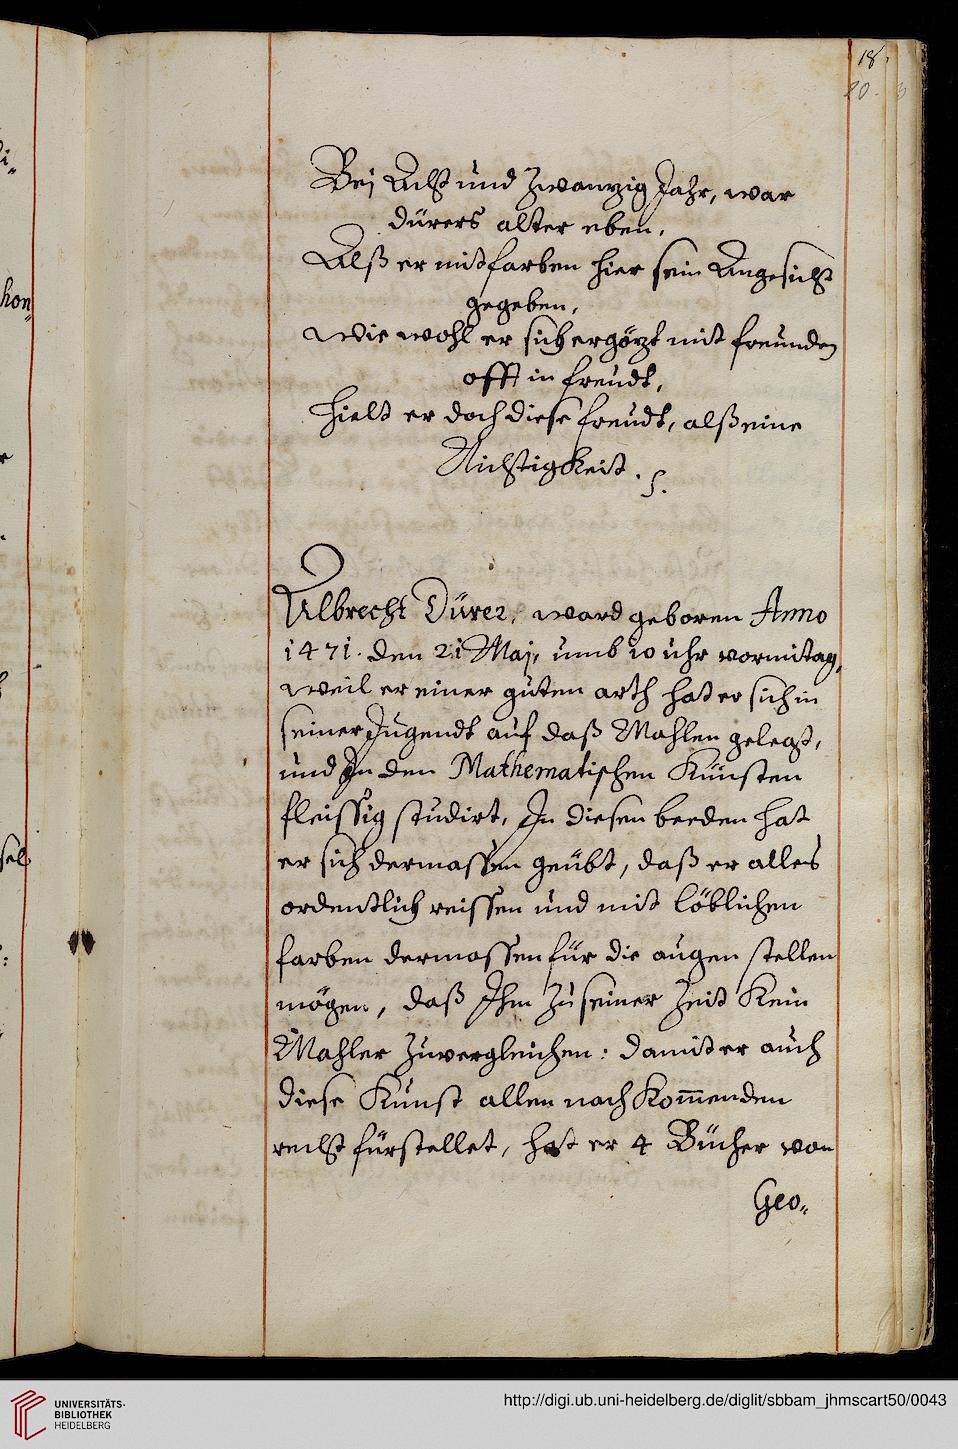 18.
20.
Bej Acht und Zwanzig Jahr, war
dürers alter eben,
Alß er mit farben hier sein Angesicht
gegeben,
wie wohl er sich ergözt mit freunden
offt in freudt,
hielt er doch diese freudt, alß eine
Nichtigkeit.
Albrecht Dürer, ward geboren Anno
1471. den 21 Maj, umb 10 uhr vormitag,
weil er einer guten arth hat er sich in
seiner Jugendt auf daß Mahlen gelegt,
und In den Mathematischen Künsten
fleissig studirt, In diesen beeden hat
er sich dermassen geübt, daß er alles
ordentlich reissen und mit löblichen
farben dermassen für die augen stellen
mögen, daß Ihm zu seiner Zeit Kein
Mahler zuvergleichen: damit er auch
diese Kunst allen nach Kom̅enden
recht fürstellet, hat er 4 Bücher von
Geo„
hon„
UNIVERSITÄTS-
BIBLIOTHEK
HEIDELBERG
http://digi.ub.uni-heidelberg.de/diglit/sbbam_jhmscart50/0043